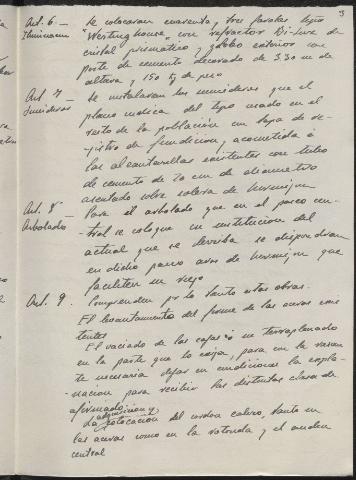 3
Art. 6 — Se colocaran cuarenta y tres farolas tipo
"Westinghouse" con refractor Bi-lux de
cristal prismatico y globo exterior con
poste de cemento decorado de 3.30 m de
altura y 150 kg de peso
Art. 7 — Se instalaran los sumideros que el
Sumideros plano indica del tipo usado en el
resto de la población con tapa de re-
gistro de fundición, acometida á
las alcantarillas existentes con tubo
de cemento de 20 cm de diametro
asentado sobre solera de hormigon
Art. 8 — Para el arbolado que en el paseo cen-
Arbolados tral se coloque en sustitucion del
actual que se derriba se dispondran
en dicho paseo aros de hormigon que
faciliten su riego
Art. 9. Comprenden por lo tanto estas obras.
El levantamiento del firme de las aceras exis
tentes
El vaciado de las cajas ó su terraplenado
en la parte que lo exija, para con la rasan
te necesaria dejar en condiciones la expla-
nacion para recibir las distintas clases de
afirmado
adquisicion y
La colocacion del cordon calizo, tanto en
las aceras como en la rotonda y el anden
central